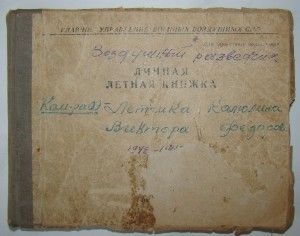 ГЛАВНОЕ УПРАВЛЕНИЕ ВОЕННЫХ ВОЗДУШНЫХ СИЛ
Воздушный разведчик
ЛИЧНАЯ
ЛЕТНАЯ КНИЖКА
Летчика Калюлина
Виктора Федоров